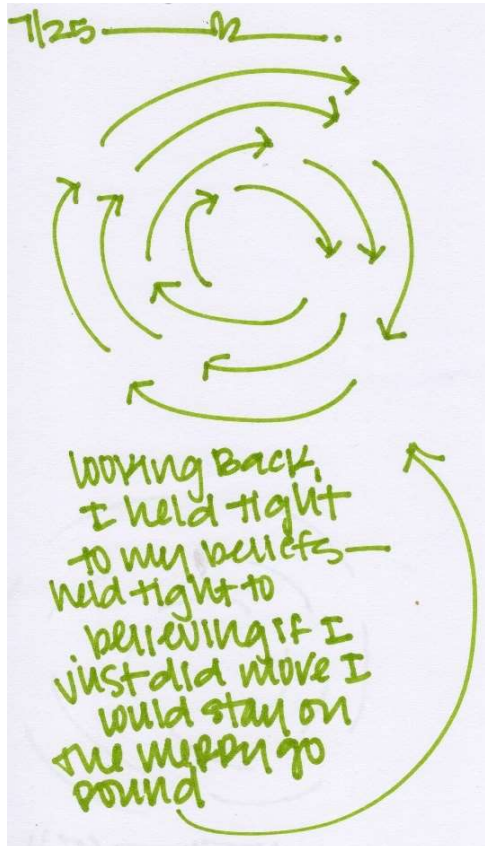 7/25
looking Back
I held tight
to my beliefs—
held tight to
believing if I
just did more I
would stay on
the merry go
round